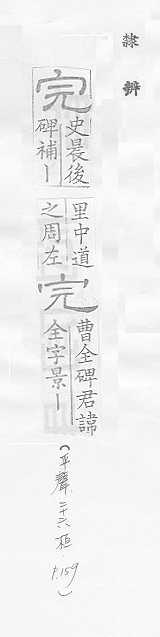 隸辨
完
史晨後
碑補丨
里中道
之周左
完
曹全碑君諱
全字景丨
(平聲二十六桓 P.159)